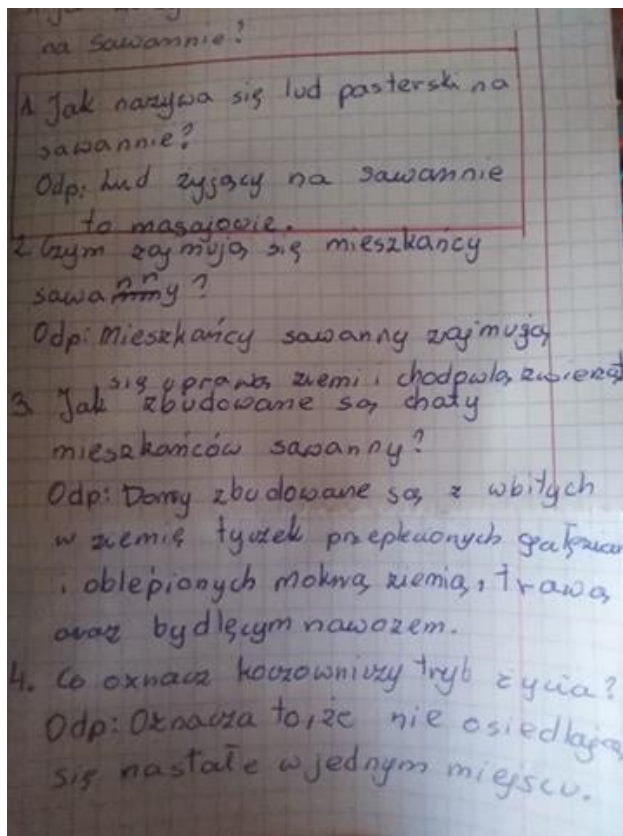 na sawannie?
1. Jak nazywa się lud pasterski na
sawannie?
Odp: Lud żyjący na sawannie
to masajowie.
2. Czym zajmują się mieszkańcy
sawanny?
Odp: Mieszkańcy sawanny zajmują
się uprawą ziemi i chodowlą zwierząt
3. Jak zbudowane są chaty
mieszkańców sawanny?
Odp: Domy zbudowane są z wbitych
w ziemię tyczek przeplecionych gałęziami
i oblepionych mokrą ziemią, trawą
oraz bydlęcym nawozem.
4. Co oznacz koczowniczy tryb życia?
Odp: Oznacza to, że nie osiedlają
się nastałe w jednym miejscu.